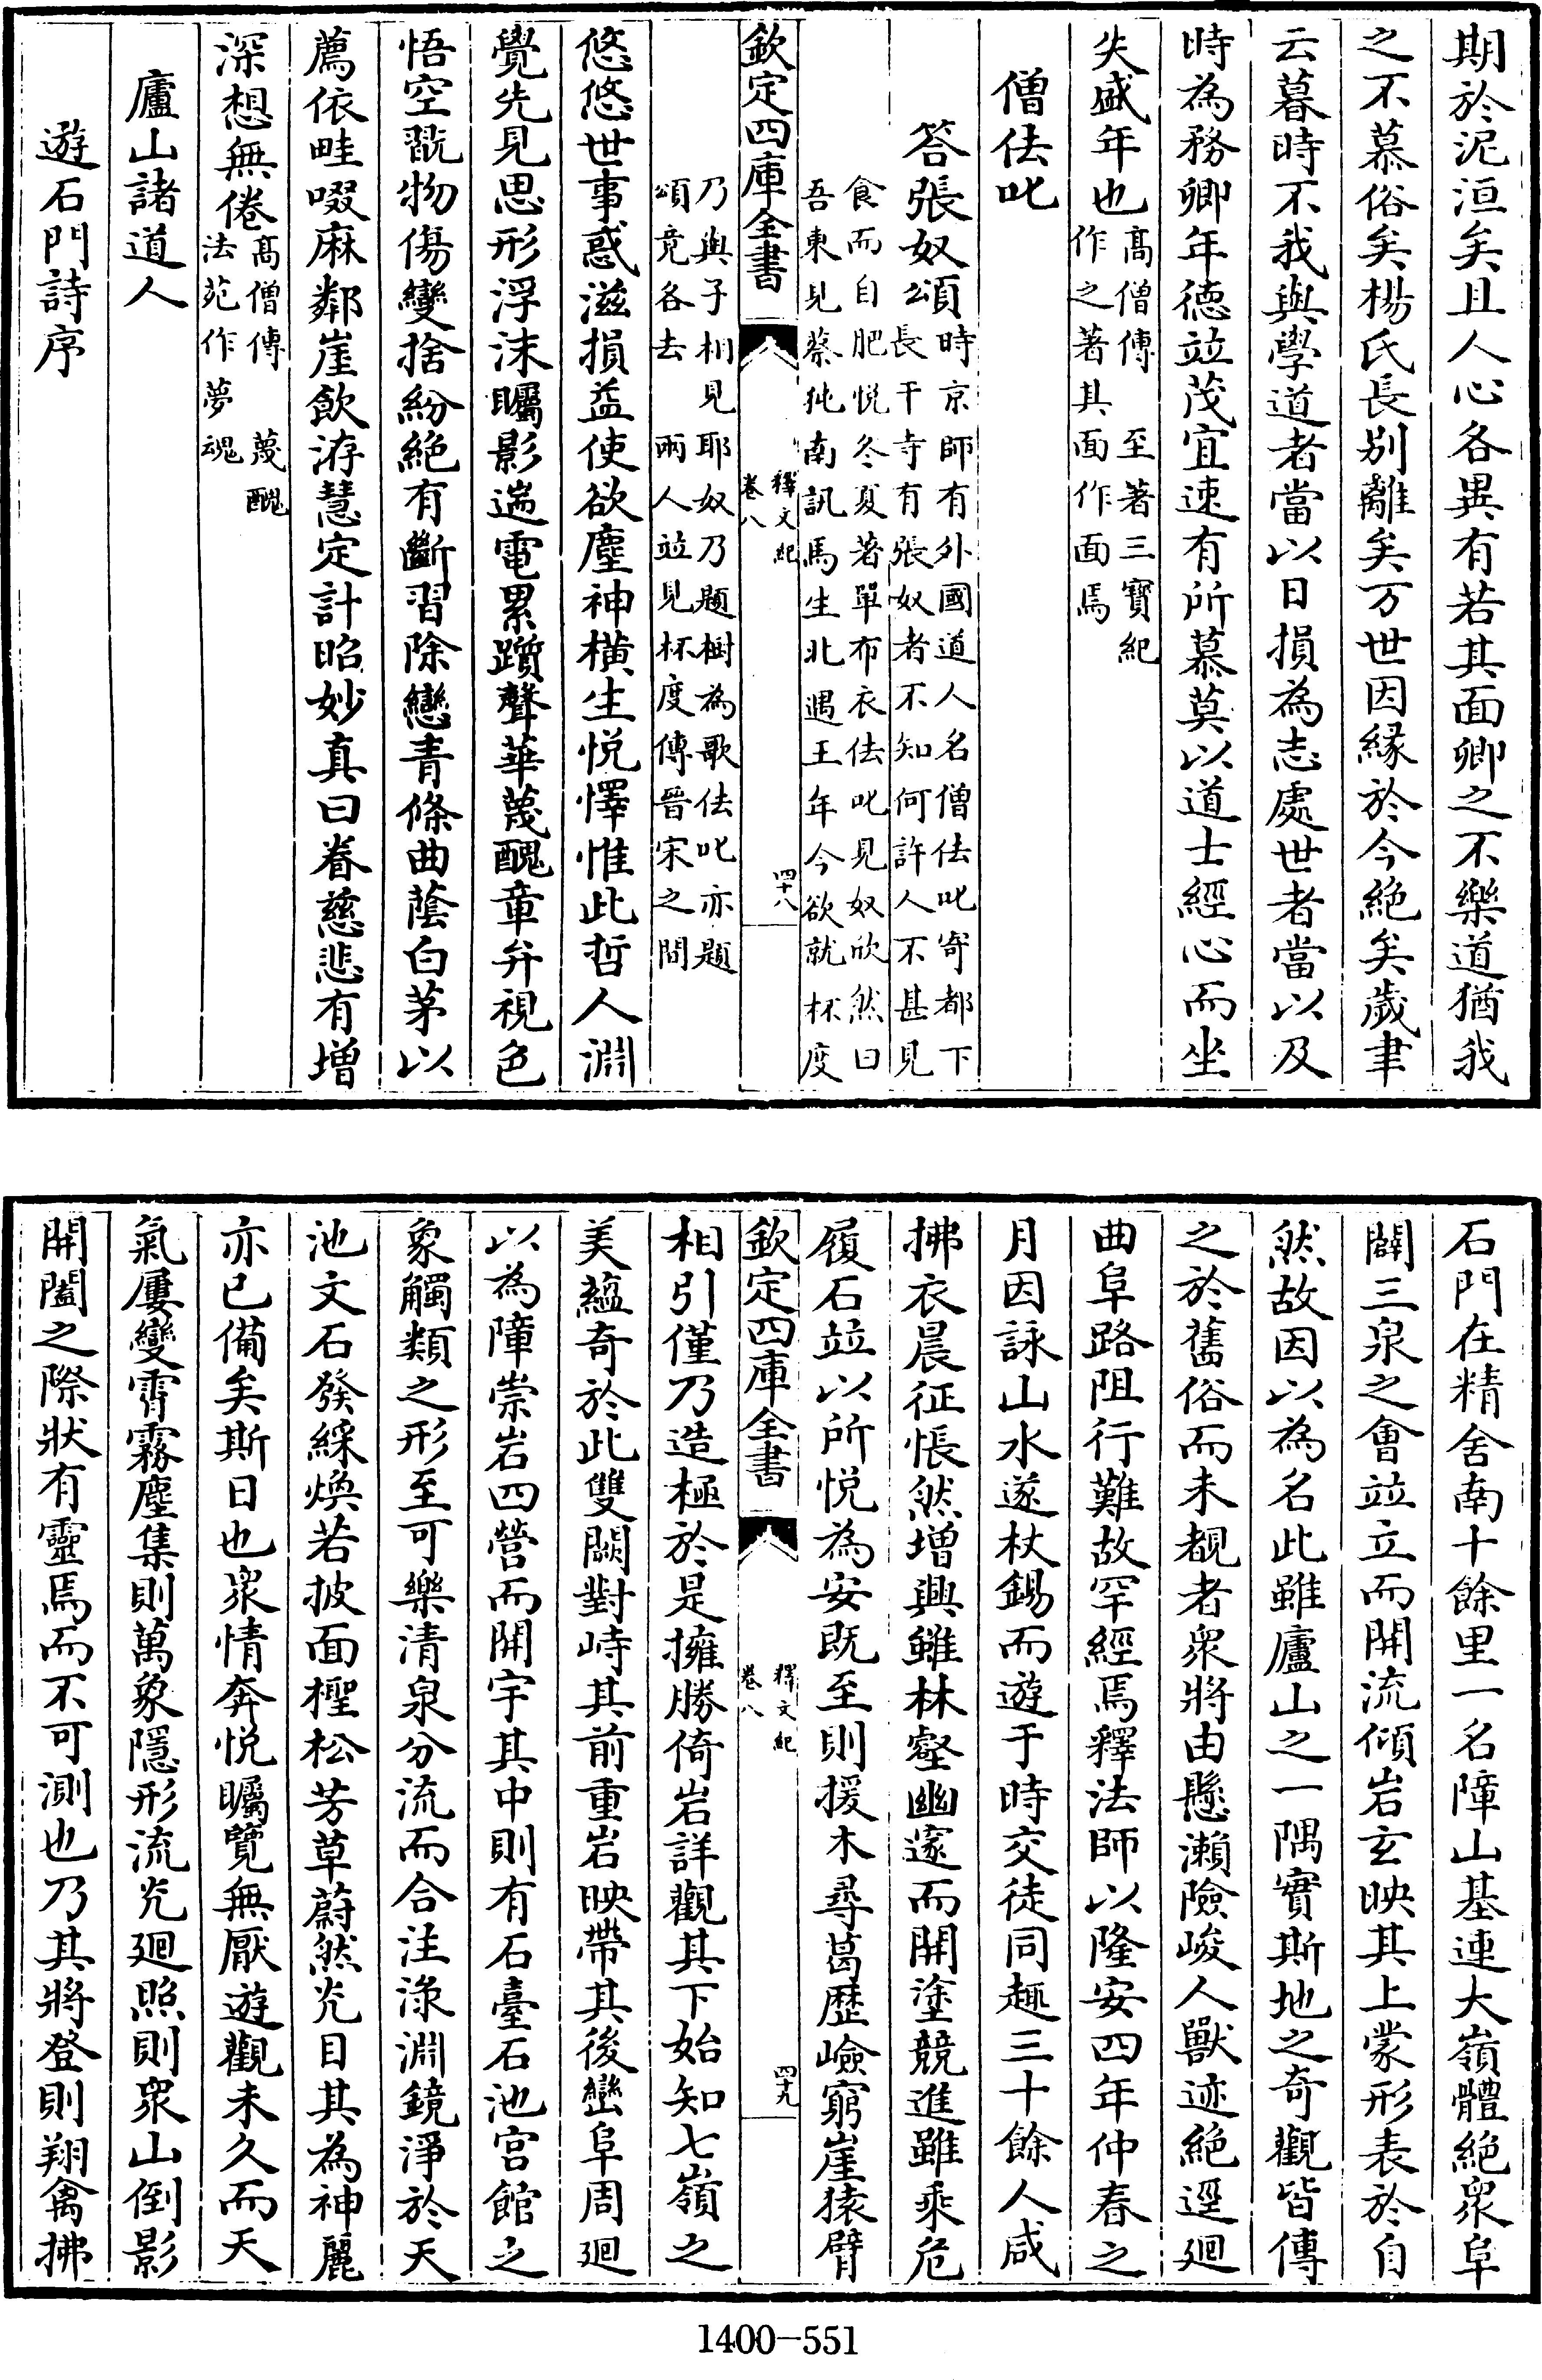 期於泥洹矣且人心各異有若其面卿之不樂道猶我
之不慕俗矣楊氏長別離矣万世因緣於今絶矣歲聿
云暮時不我與學道者當以日損為志處世者當以及
時為務卿年徳竝茂宜速有所慕莫以道士經心而坐
失盛年也髙僧傳 至著三寳紀
作之著其面作面焉
僧佉吒
答張奴頌時京師有外國道人名僧佉吒寄都下
長干寺有張奴者不知何許人不甚見
食而自肥悦冬夏著單布衣佉吒見奴欣然曰
吾東見蔡㹠南訊馬生北遇王年今欲就杯度
欽定四庫全書
釋文紀
卷八
四十八
乃與子相見耶奴乃題樹為歌佉吒亦題
頌竟各去兩人竝見杯度傳晉宋之間
悠悠世事惑滋損益使欲塵神横生悦懌惟此哲人淵
覺先見思形浮沫矚影遄電累躓聲華蔑醜章弁視色
悟空翫物傷變捨紛絶有斷習除戀青條曲蔭白茅以
薦依畦啜麻鄰崖飲洊慧定計昭妙真曰眷慈悲有增
深想無倦髙僧傳 蔑醜
法苑作夢魂
廬山諸道人
遊石門詩序
石門在精舍南十餘里一名障山基連大嶺體絶衆阜
闢三泉之會竝立而開流傾岩玄映其上蒙形表於自
然故因以為名此雖廬山之一隅實斯地之奇觀皆傳
之於舊俗而未覩者衆將由懸瀨險峻人獸迹絶逕廻
曲阜路阻行難故罕經焉釋法師以隆安四年仲春之
月因詠山水遂杖錫而遊于時交徒同趣三十餘人咸
拂衣晨征悵然增興雖林壑幽邃而開塗競進雖乘危
履石竝以所悦為安既至則援木尋葛歴嶮窮崖猿臂
欽定四庫全書
釋文紀
卷八
四十九
相引僅乃造極於是擁勝倚岩詳觀其下始知七嶺之
美藴奇於此雙闕對峙其前重岩映帶其後巒阜周廻
以為障崇岩四營而開宇其中則有石臺石池宫館之
象觸類之形至可樂清泉分流而合注渌淵鏡淨於天
池文石發綵焕若披面檉松芳草蔚然光目其為神麗
亦已備矣斯日也衆情奔悦矚覽無厭遊觀未久而天
氣屢變霄霧塵集則萬象隱形流光廻照則衆山倒影
開闔之際狀有靈焉而不可測也乃其將登則翔禽拂
1400-551